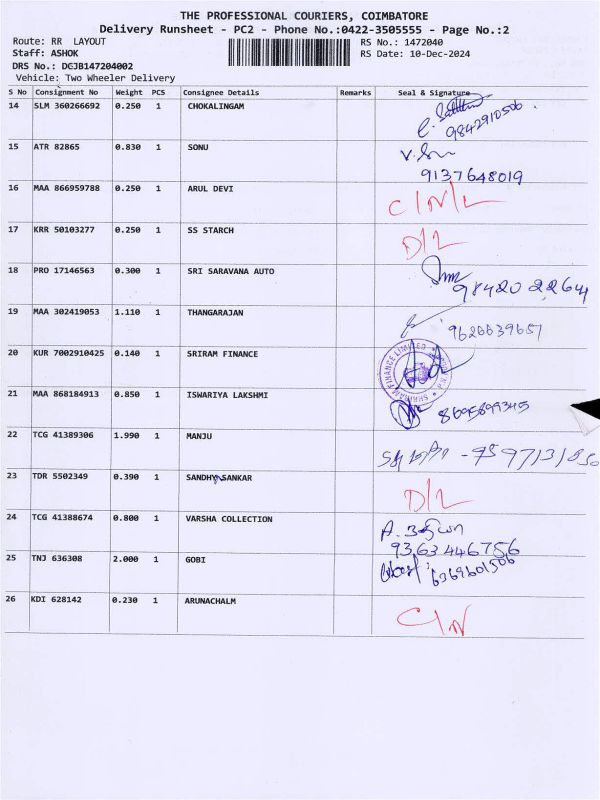 THE PROFESSIONAL COURIERS, COIMBATORE
Delivery Runsheet - PC2 - Phone No.:0422-3505555 - Page No.:2
Route: RR LAYOUT RS No.: 1472040
Staff: ASHOK RS Date: 10-Dec-2024
DRS No.: DEJB147204002
Vehicle: Two Wheeler Delivery
S No Consignment No Weight PCS Consignee Details Remarks Seal & Signature
14 SLM 360266692 0.250 1 CHOKALINGAM
9842910506
15 ATR 82865 0.830 1 SONU
9137648019
16 MAA 866959788 0.250 1 ARUL DEVI C/N/L
17 KRR 50103277 0.250 1 SS STARCH D/L
18 PRO 17146563 0.300 1 SRI SARAVANA AUTO
98420 22641
19 MAA 302419053 1.110 1 THANGARAJAN
9626639657
20 KUR 7002910425 0.140 1 SRIRAM FINANCE FINANCE LIMITED
21 MAA 868184913 0.850 1 ISWARIYA LAKSHMI 8695899345
22 TCG 41389306 1.990 1 MANJU
23 TDR 5502349 0.390 1 SANDHY SANKAR D/L
24 TCG 41388674 0.800 1 VARSHA COLLECTION
9363446756
25 TNJ 636308 2.000 1 GOBI 6369601506
26 KDI 628142 0.230 1 ARUNACHALM C/N